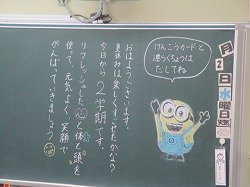 おはようございます。
夏休みは楽しくすごせたかな？
今日から2学期です。
リフレッシュした心と体と頭を
使って、元気よく笑顔で
がんばっていきましょう
けんこうカードと
連らくちょうは
だしてね
月
2
日
水曜日